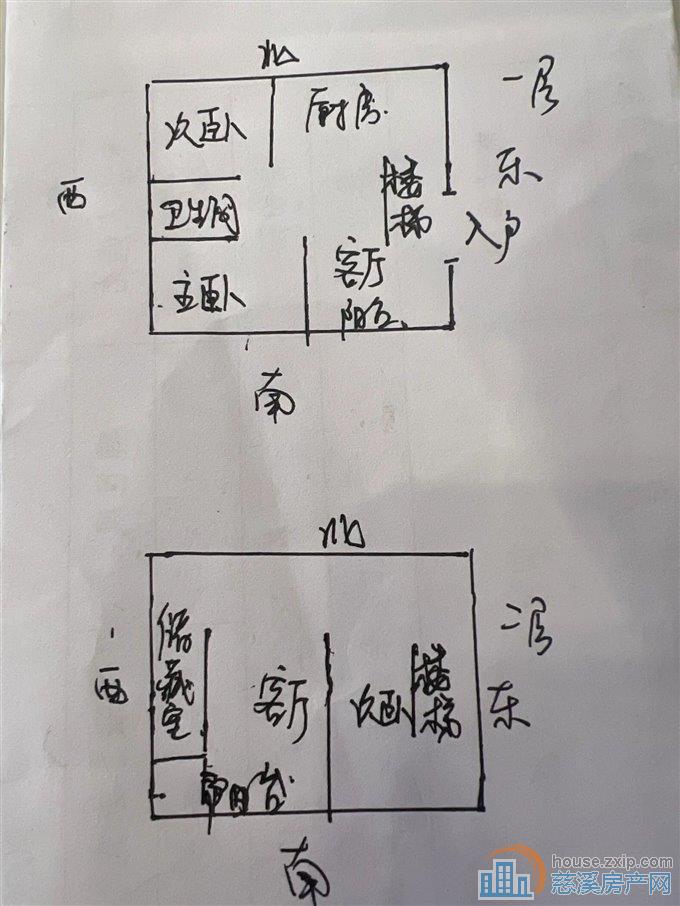 北
一层
次卧
厨房
东
西
楼梯
卫生间
入户
客厅
主卧
阳台
南
北
二层
储藏室
西
客厅
次卧
楼梯
东
阳台
南
house.zxip.com
慈溪房产网